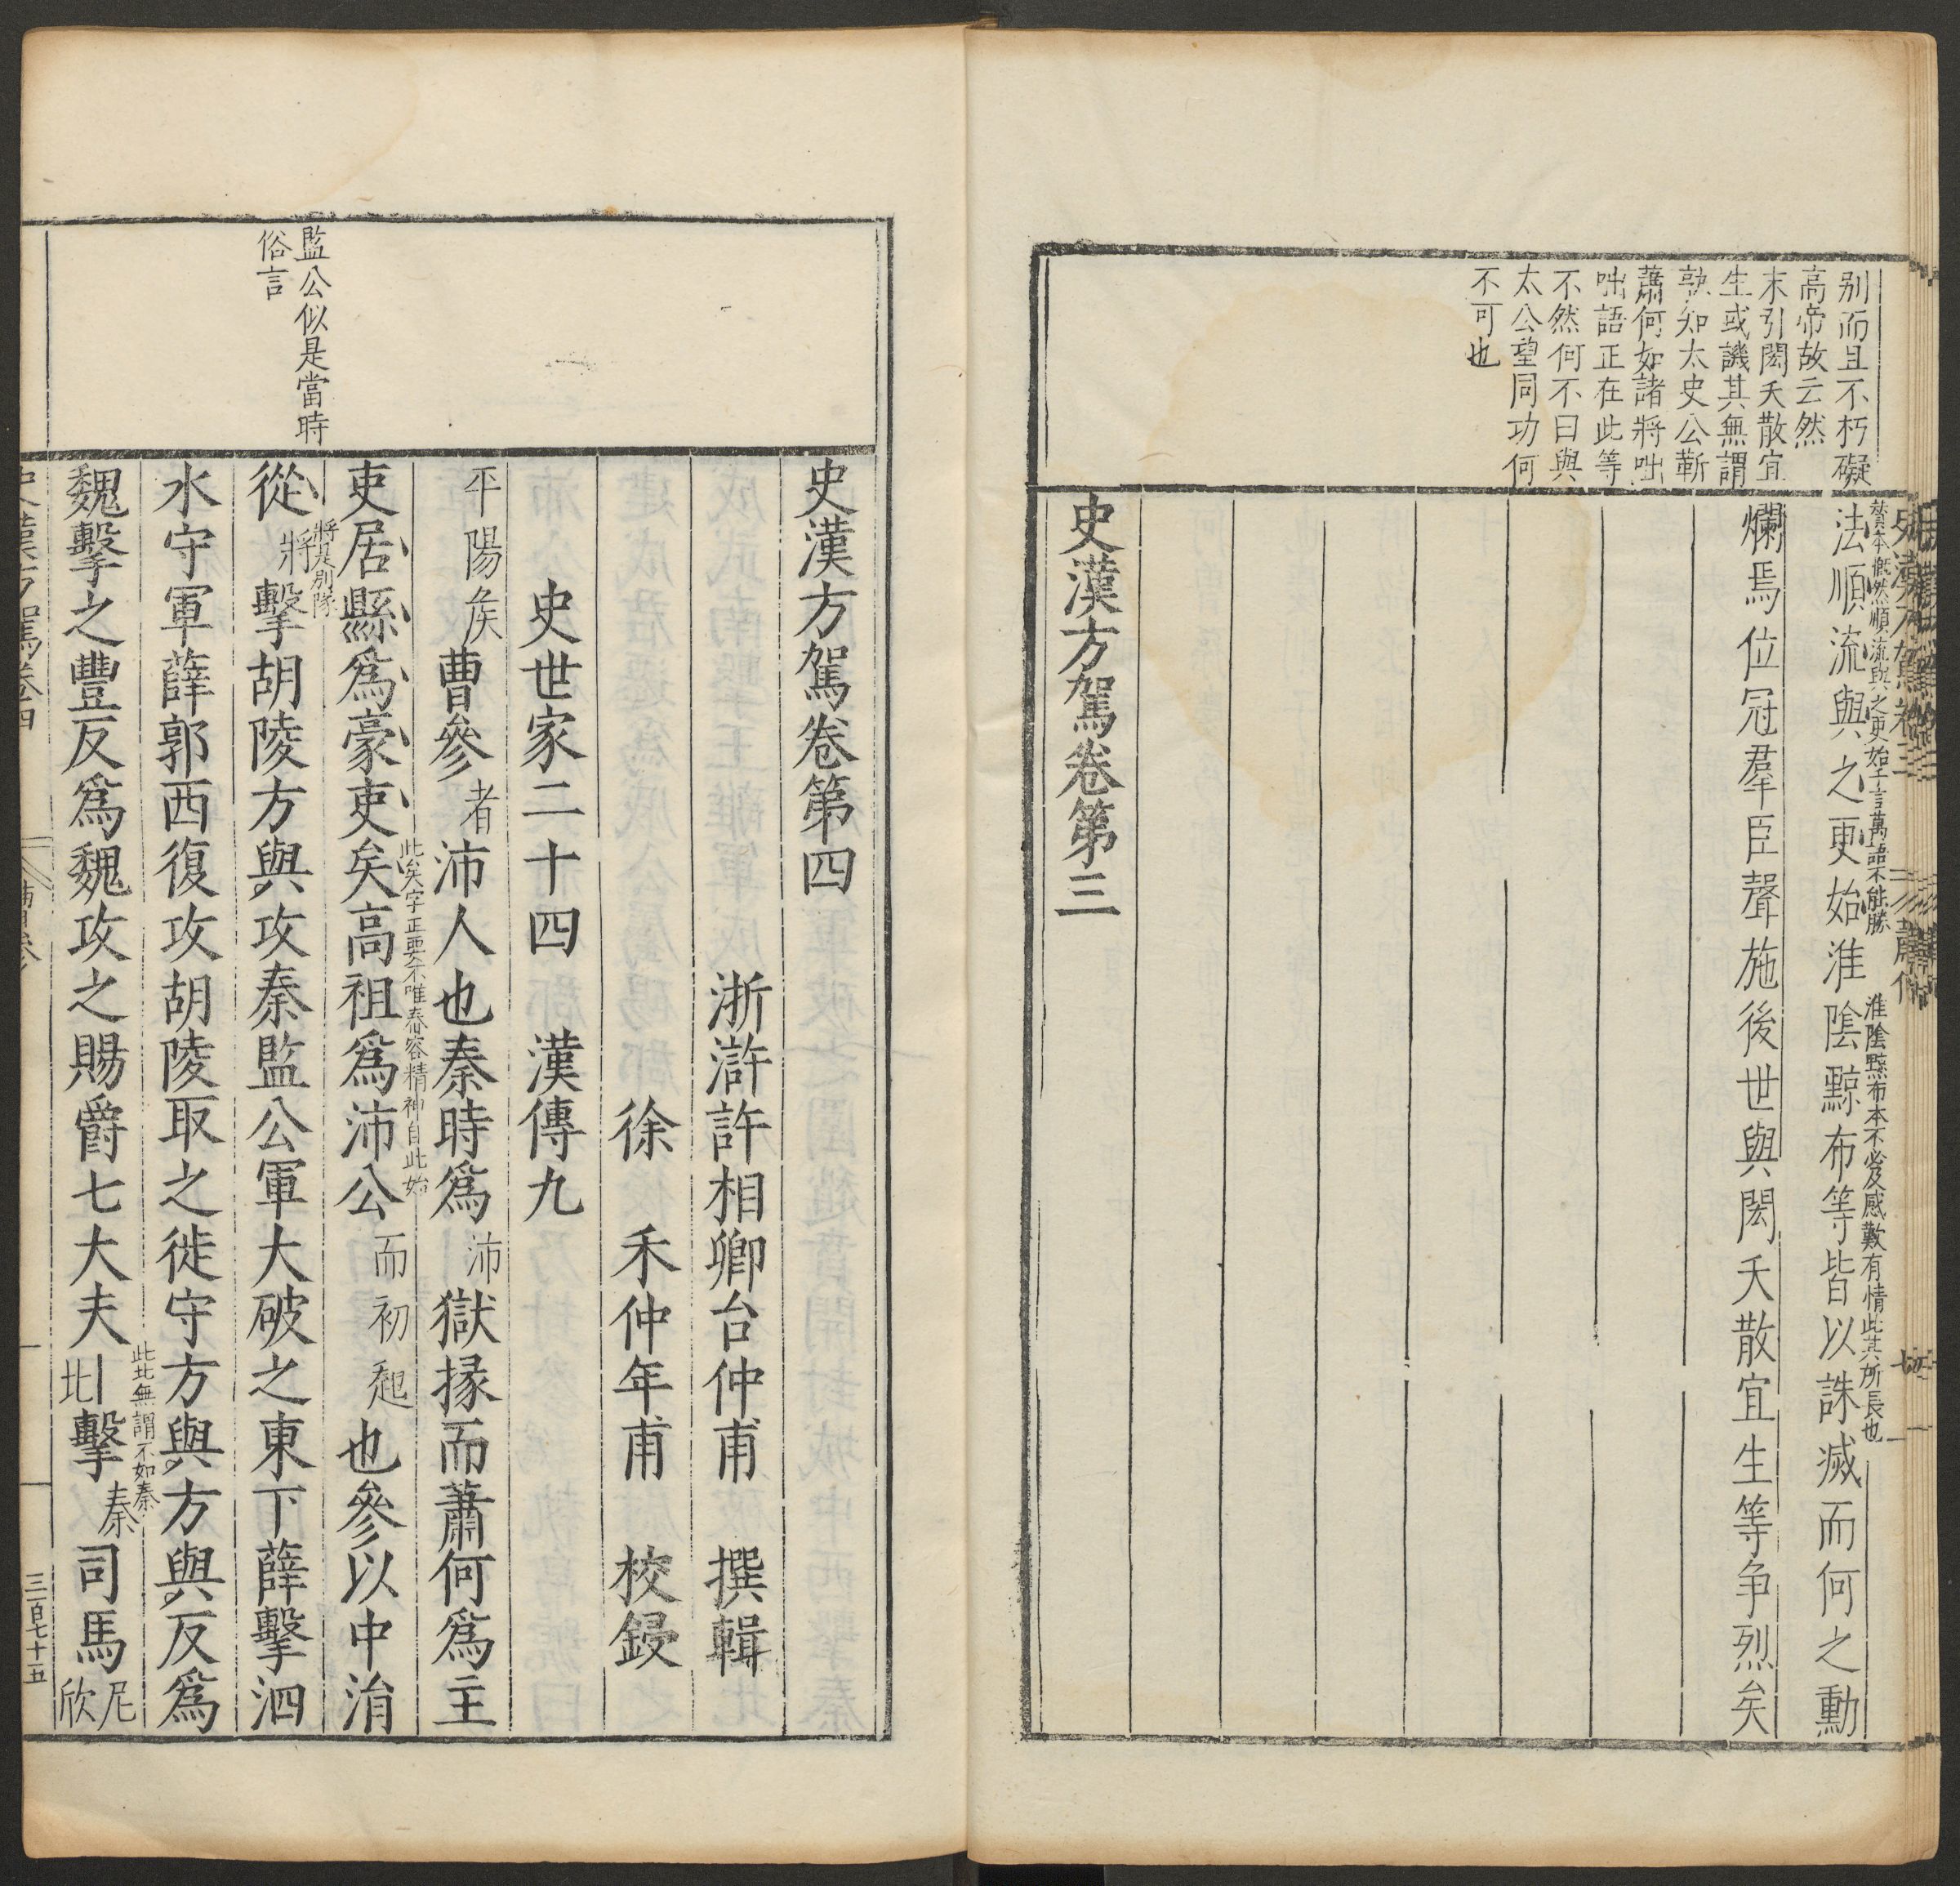 别而且不朽礙
高帝故云然
末引閎夭散宜
生或譏其無謂
孰知太史公蘄
蕭何如諸將咄
咄語正在此等
不然何不曰與
太公望同功何
不可也
贊本慨然順流與之更始千言萬語不能勝
淮陰黥布本不必及感歎有情此其所長也
法順流與之更始淮陰黥布等皆以誅滅而何之勳
爛焉位冠羣臣聲施後世與閎夭散宜生等争烈矣
史漢方駕卷第三
監公似是當時
俗言
史漢方駕卷第四
浙滸許相卿台仲甫 撰輯
徐 禾仲年甫 校録
史世家二十四 漢傳九
平陽侯曹參者沛人也秦時爲沛獄掾而蕭何爲主
此矣字正要不唯春容精神自此始
吏居縣爲豪吏矣高祖爲沛公而初起也參以中涓
將是别隊
從將擊胡陵方與攻秦監公軍大破之東下薛擊泗
水守軍薛郭西復攻胡陵取之徙守方與方與反爲
此北無謂不如秦
魏擊之豐反爲魏攻之賜爵七大夫北擊秦司馬𡰥欣
三百七十五